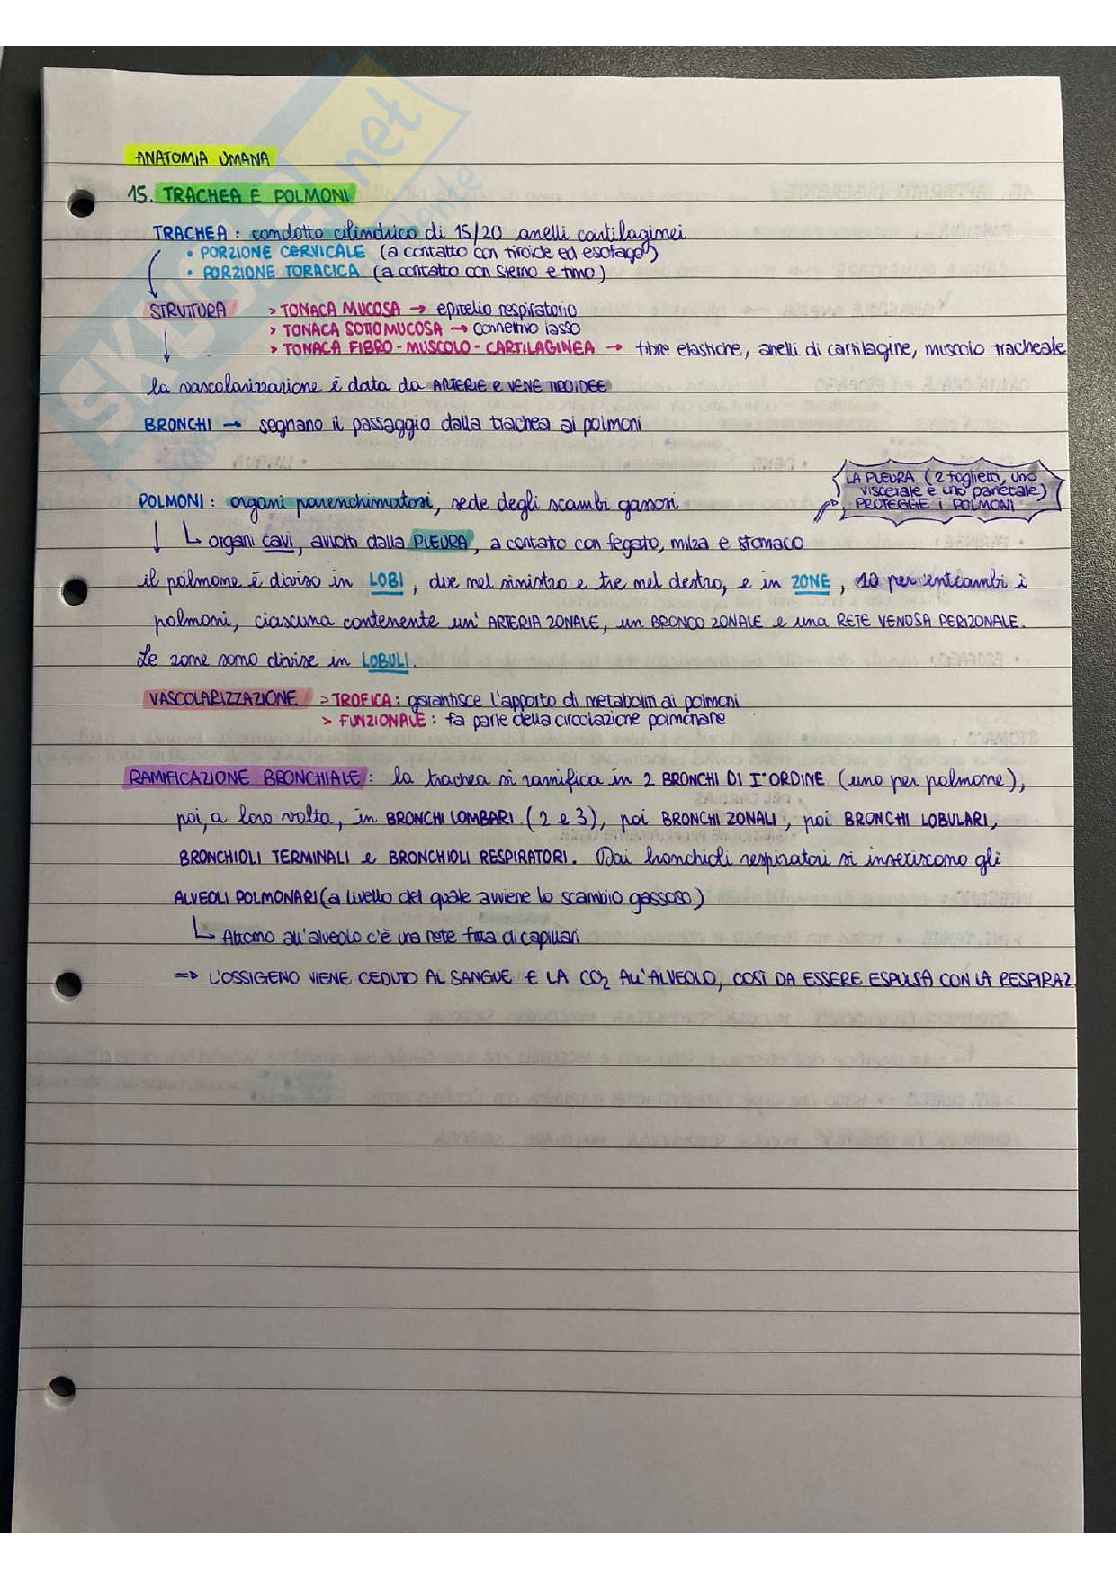 ANATOMIA UMANA
15. TRACHEA E POLMONI
TRACHEA : condotto cilindrico di 15/20 anelli cartilaginei
• PORZIONE CERVICALE (a contatto con tiroide ed esofago)
• PORZIONE TORACICA (a contatto con sterno e timo)
STRUTTURA > TONACA MUCOSA → epitelio respiratorio
> TONACA SOTTOMUCOSA → connettivo lasso
> TONACA FIBRO-MUSCOLO-CARTILAGINEA → fibre elastiche, anelli di cartilagine, muscolo tracheale
la vascolarizzazione è data da ARTERIE E VENE TIROIDEE
BRONCHI → segnano il passaggio dalla trachea ai polmoni
LA PLEURA (2 foglietti, uno
viscerale e uno parietale)
PROTEGGE I POLMONI
POLMONI : organi parenchimatosi, sede degli scambi gassosi
↳ organi cavi, avvolti dalla PLEURA, a contatto con fegato, milza e stomaco
il polmone è diviso in LOBI, due nel sinistro e tre nel destro, e in ZONE, 10 per entrambi i
polmoni, ciascuna contenente un' ARTERIA ZONALE, un BRONCO ZONALE e una RETE VENOSA PERIZONALE.
Le zone sono divise in LOBULI.
VASCOLARIZZAZIONE > TROFICA : garantisce l'apporto di metaboliti ai polmoni
> FUNZIONALE : fa parte della circolazione polmonare
RAMIFICAZIONE BRONCHIALE : la trachea si ramifica in 2 BRONCHI DI I° ORDINE (uno per polmone),
poi, a loro volta, in BRONCHI LOMBARI (2 e 3), poi BRONCHI ZONALI, poi BRONCHI LOBULARI,
BRONCHIOLI TERMINALI e BRONCHIOLI RESPIRATORI. Dai bronchioli respiratori si inseriscono gli
ALVEOLI POLMONARI (a livello del quale avviene lo scambio gassoso)
↳ Attorno all'alveolo c'è una rete fitta di capillari
⇒ L'OSSIGENO VIENE CEDUTO AL SANGUE E LA CO₂ ALL'ALVEOLO, COSÌ DA ESSERE ESPULSA CON LA RESPIRAZ